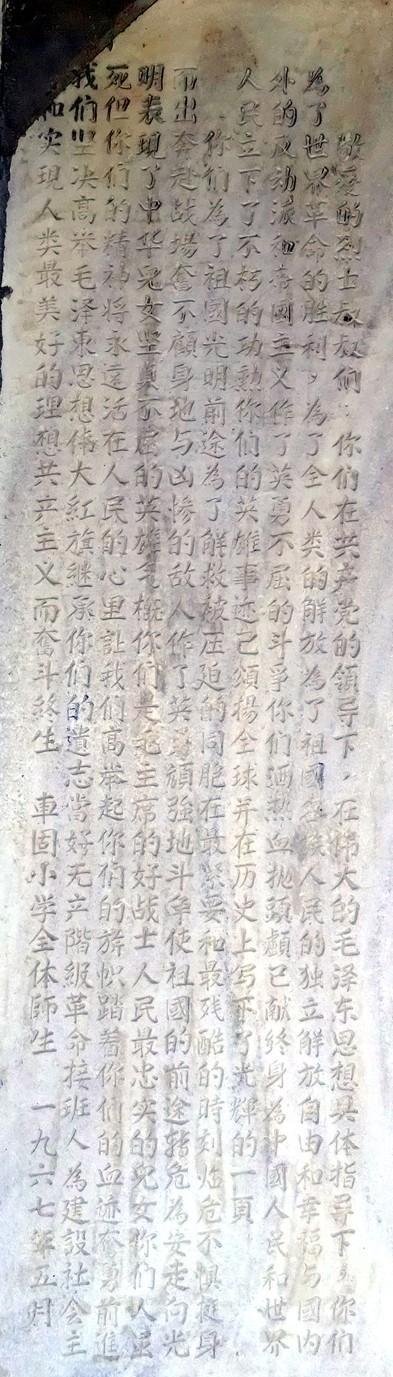 敬愛的烈士叔叔們：你们在共产党的領导下，在偉大的毛泽东思想具体指导下，你们
為了世界革命的胜利，為了全人类的解放為了祖國各族人民的独立解放自由和幸福与國内
外的反动派和帝國主义作了英勇不屈的斗爭你们洒热血抛頭顱已献终身為中國人民和世界
人民立下了不朽的功勳你们的英雄事迹已頌揚全球并在历史上写下了光輝的一頁
你们為了祖國光明前途為了解救被压廹的同胞在最緊要和最残酷的時刻临危不惧挺身
而出奔赴战場奮不顧身地与凶惨的敌人作了英勇頑強地斗爭使祖國的前途轉危為安走向光
明表現了中华兒女坚貞不屈的英雄气概你们是毛主席的好战士人民最忠实的兒女你们人虽
死但你们的精神将永遠活在人民的心里讓我们高举起你们的旂帜踏着你们的血迹奋勇前進
我们坚决高举毛泽東思想偉大紅旗継承你们的遺志當好无产階級革命接班人為建設社会主
而实現人类最美好的理想共产主义而奮斗終生 車固小学全体師生 一九六七年五月